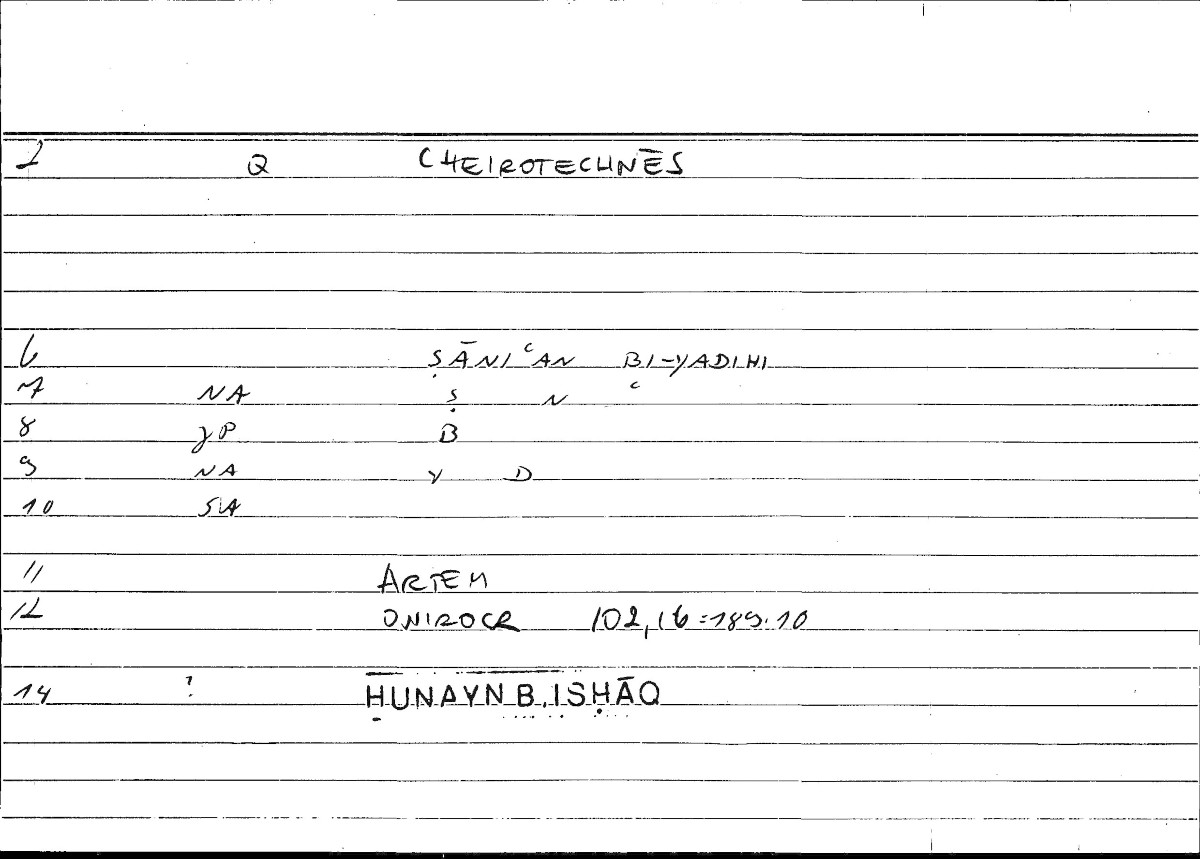 2 Q CHEIROTECHNĒS
6 ṢĀNIʿAN BI-YADIHI
7 NA Ṣ N ʿ
8 γP B
9 NA Y D
10 SA
11 ARTEM
12 ONIROCR 102,16=189.10
14 ? ḤUNAYN B. ISḤĀQ